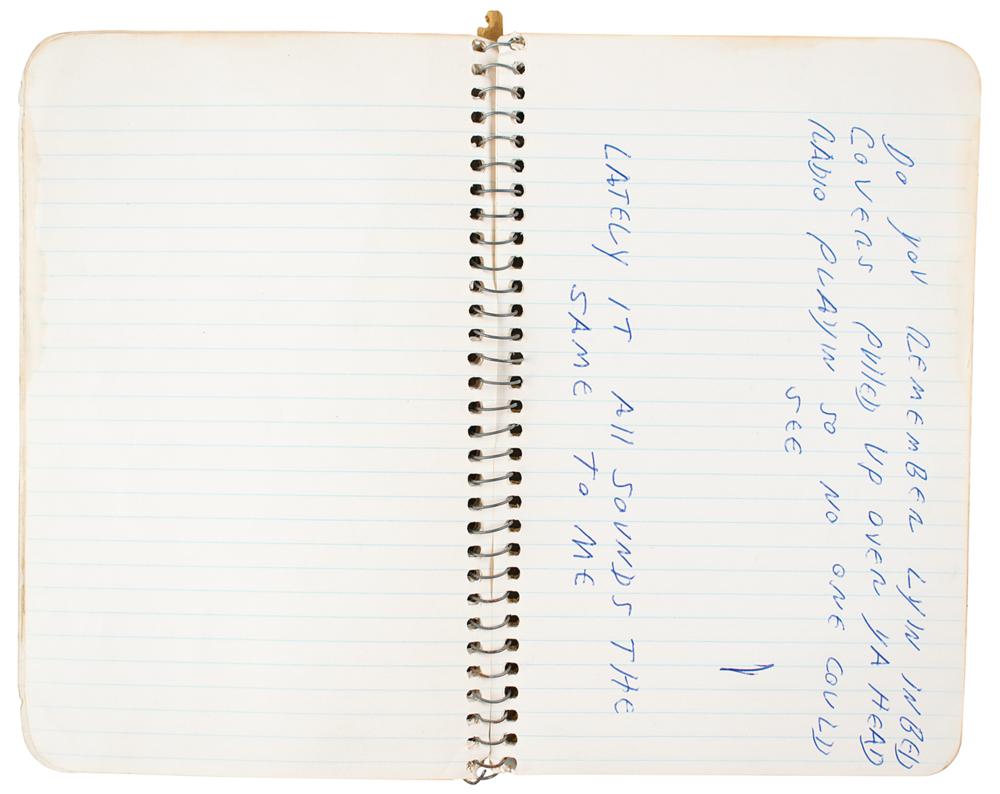 DO YOU REMEMBER LYIN IN BED
COVERS PUllED UP OVER YA HEAD
RADIO PLAYIN SO NO ONE COULD
SEE
LATELY IT All SOUNDS THE
SAME TO ME